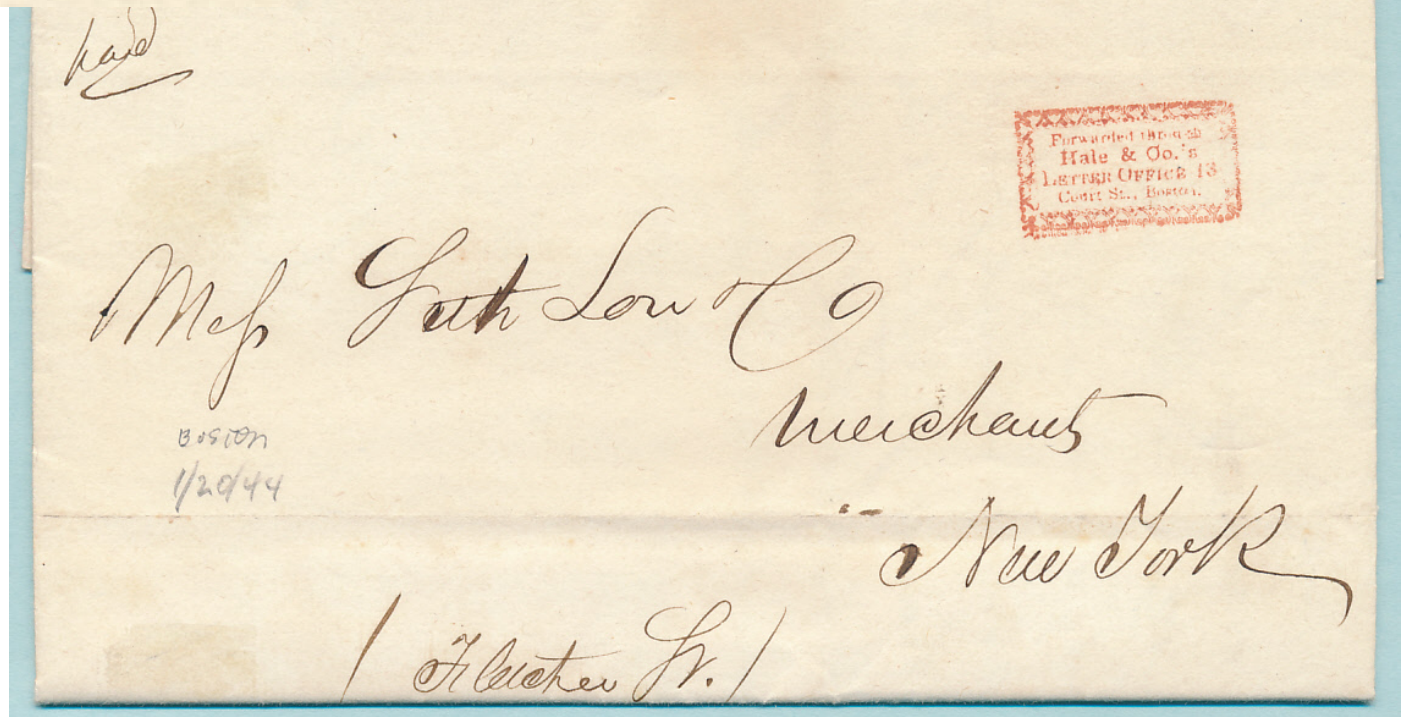 paid
Forwarded through
Hale & Co.'s
LETTER OFFICE 13
Court St., Boston.
Mess Seth Low & Co
Merchants
New York
Boston
1/20/44
( Fletcher St. )